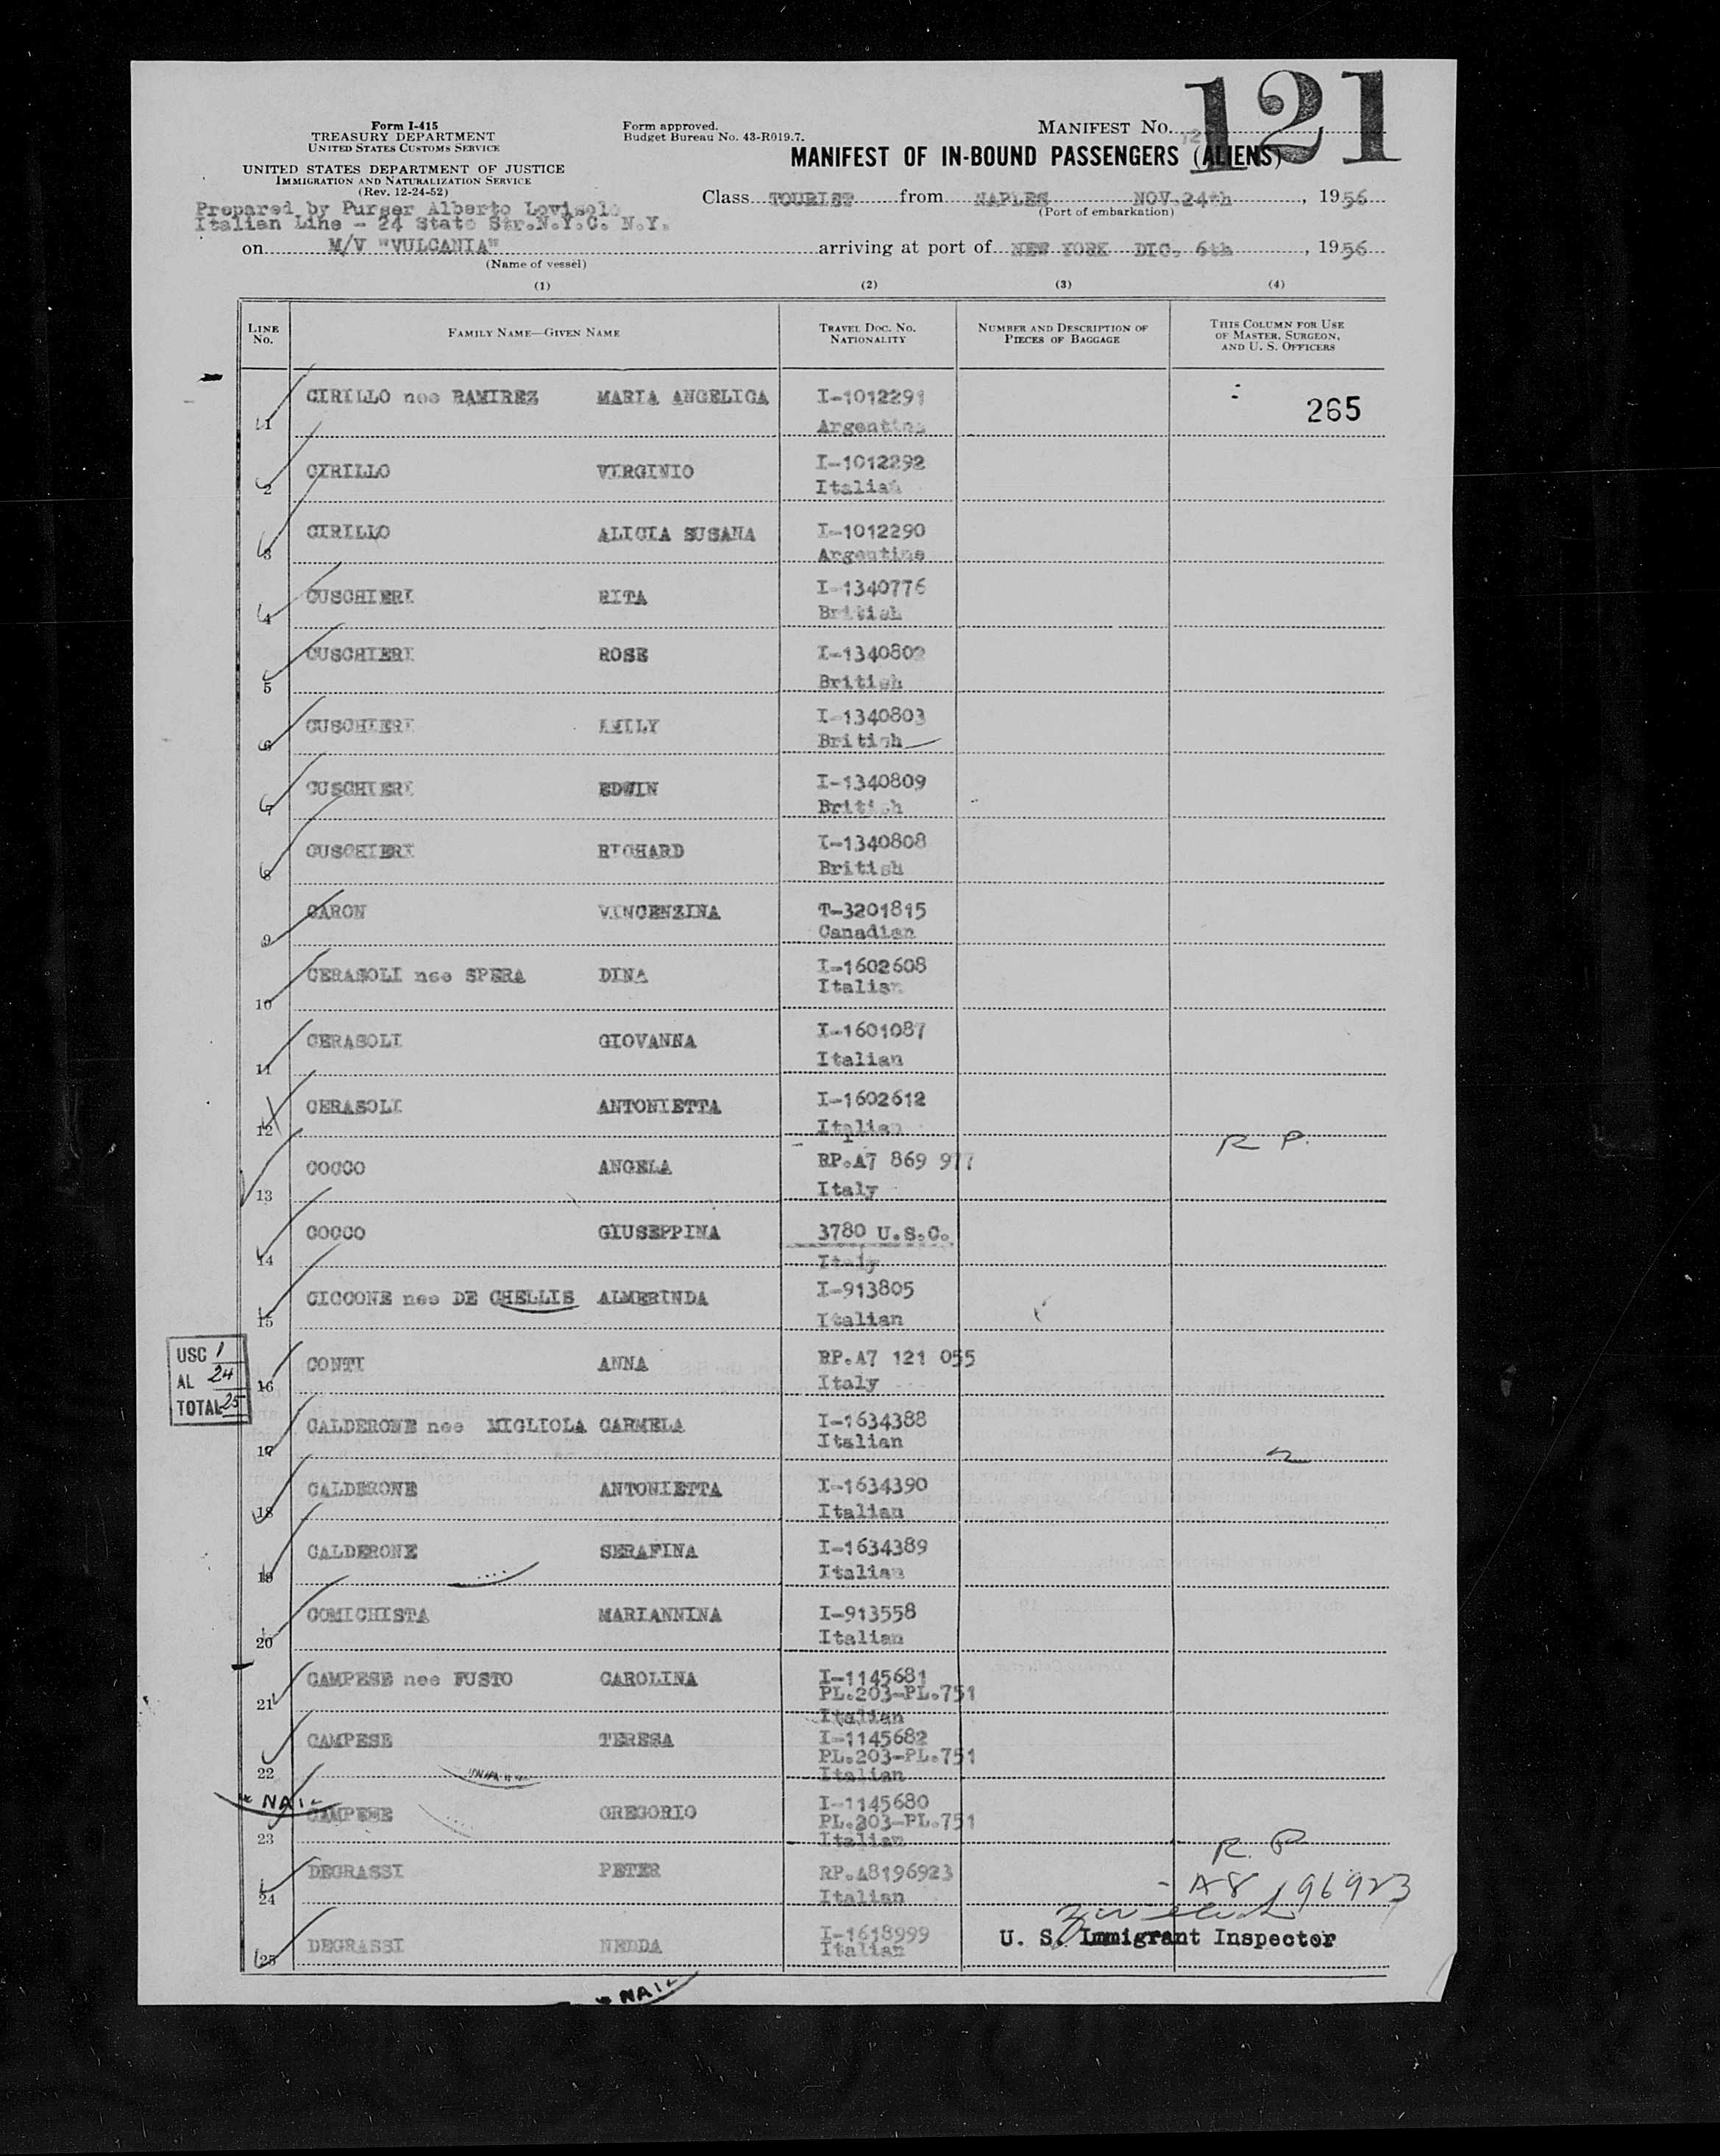 121
Form I-415
TREASURY DEPARTMENT
UNITED STATES CUSTOMS SERVICE
UNITED STATES DEPARTMENT OF JUSTICE
IMMIGRATION AND NATURALIZATION SERVICE
(Rev. 12-24-52)
Form approved.
Budget Bureau No. 43-R019.7.
MANIFEST NO.
MANIFEST OF IN-BOUND PASSENGERS (ALIENS)
Prepared by Purser Alberto Lovisolo
Italian Line - 24 State Str.N.Y.C. N.Y.
Class TOURIST from NAPLES NOV.24th, 1956
(Port of embarkation)
on M/V "VULCANIA" arriving at port of NEW YORK DIC. 6th, 1956
(Name of vessel)
(1) (2) (3) (4)
LINE No. FAMILY NAME—GIVEN NAME TRAVEL DOC. NO. NATIONALITY NUMBER AND DESCRIPTION OF PIECES OF BAGGAGE THIS COLUMN FOR USE OF MASTER, SURGEON, AND U. S. OFFICERS
1 CIRILLO nee RAMIREZ MARIA ANGELICA I-1012291 265
Argentine
2 CIRILLO VIRGINIO I-1012292
Italian
3 CIRILLO ALICIA SUSANA I-1012290
Argentine
4 CUSCHIERI RITA I-1340776
British
5 CUSCHIERI ROSE I-1340802
British
6 CUSCHIERI EMILY I-1340803
British
7 CUSCHIERI EDWIN I-1340809
British
8 CUSCHIERI RICHARD I-1340808
British
9 CARON VINCENZINA T-3201815
Canadian
10 CERASOLI nee SPERA DINA I-1602608
Italian
11 CERASOLI GIOVANNA I-1601087
Italian
12 CERASOLI ANTONIETTA I-1602612
Italian
R P.
13 COCCO ANGELA RP.A7 869 977
Italy
14 COCCO GIUSEPPINA 3780 U.S.C.
Italy
15 CICCONE nee DE CHELLIS ALMERINDA I-913805
Italian
USC 1
AL 24
TOTAL 25
16 CONTI ANNA RP.A7 121 055
Italy
17 CALDERONE nee MIGLIOLA CARMELA I-1634388
Italian
18 CALDERONE ANTONIETTA I-1634390
Italian
19 CALDERONE SERAFINA I-1634389
Italian
20 COMICHISTA MARIANNINA I-913558
Italian
21 CAMPESE nee FUSTO CAROLINA I-1145681
PL.203-PL.751
Italian
22 CAMPESE TERESA I-1145682
PL.203-PL.751
Italian
NAI
23 CAMPESE GREGORIO I-1145680
PL.203-PL.751
Italian
R. P
24 DEGRASSI PETER RP.A8196923 A8 196923
Italian
25 DEGRASSI NEDDA I-1618999
Italian
U. S. Immigrant Inspector
NAI